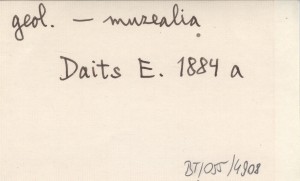 geol. — muzealia
Daits E. 1884 a
BT/055/4908